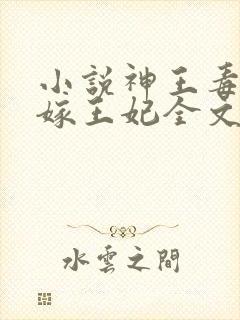 小說神王毒
嫁王妃全文
水雲之間